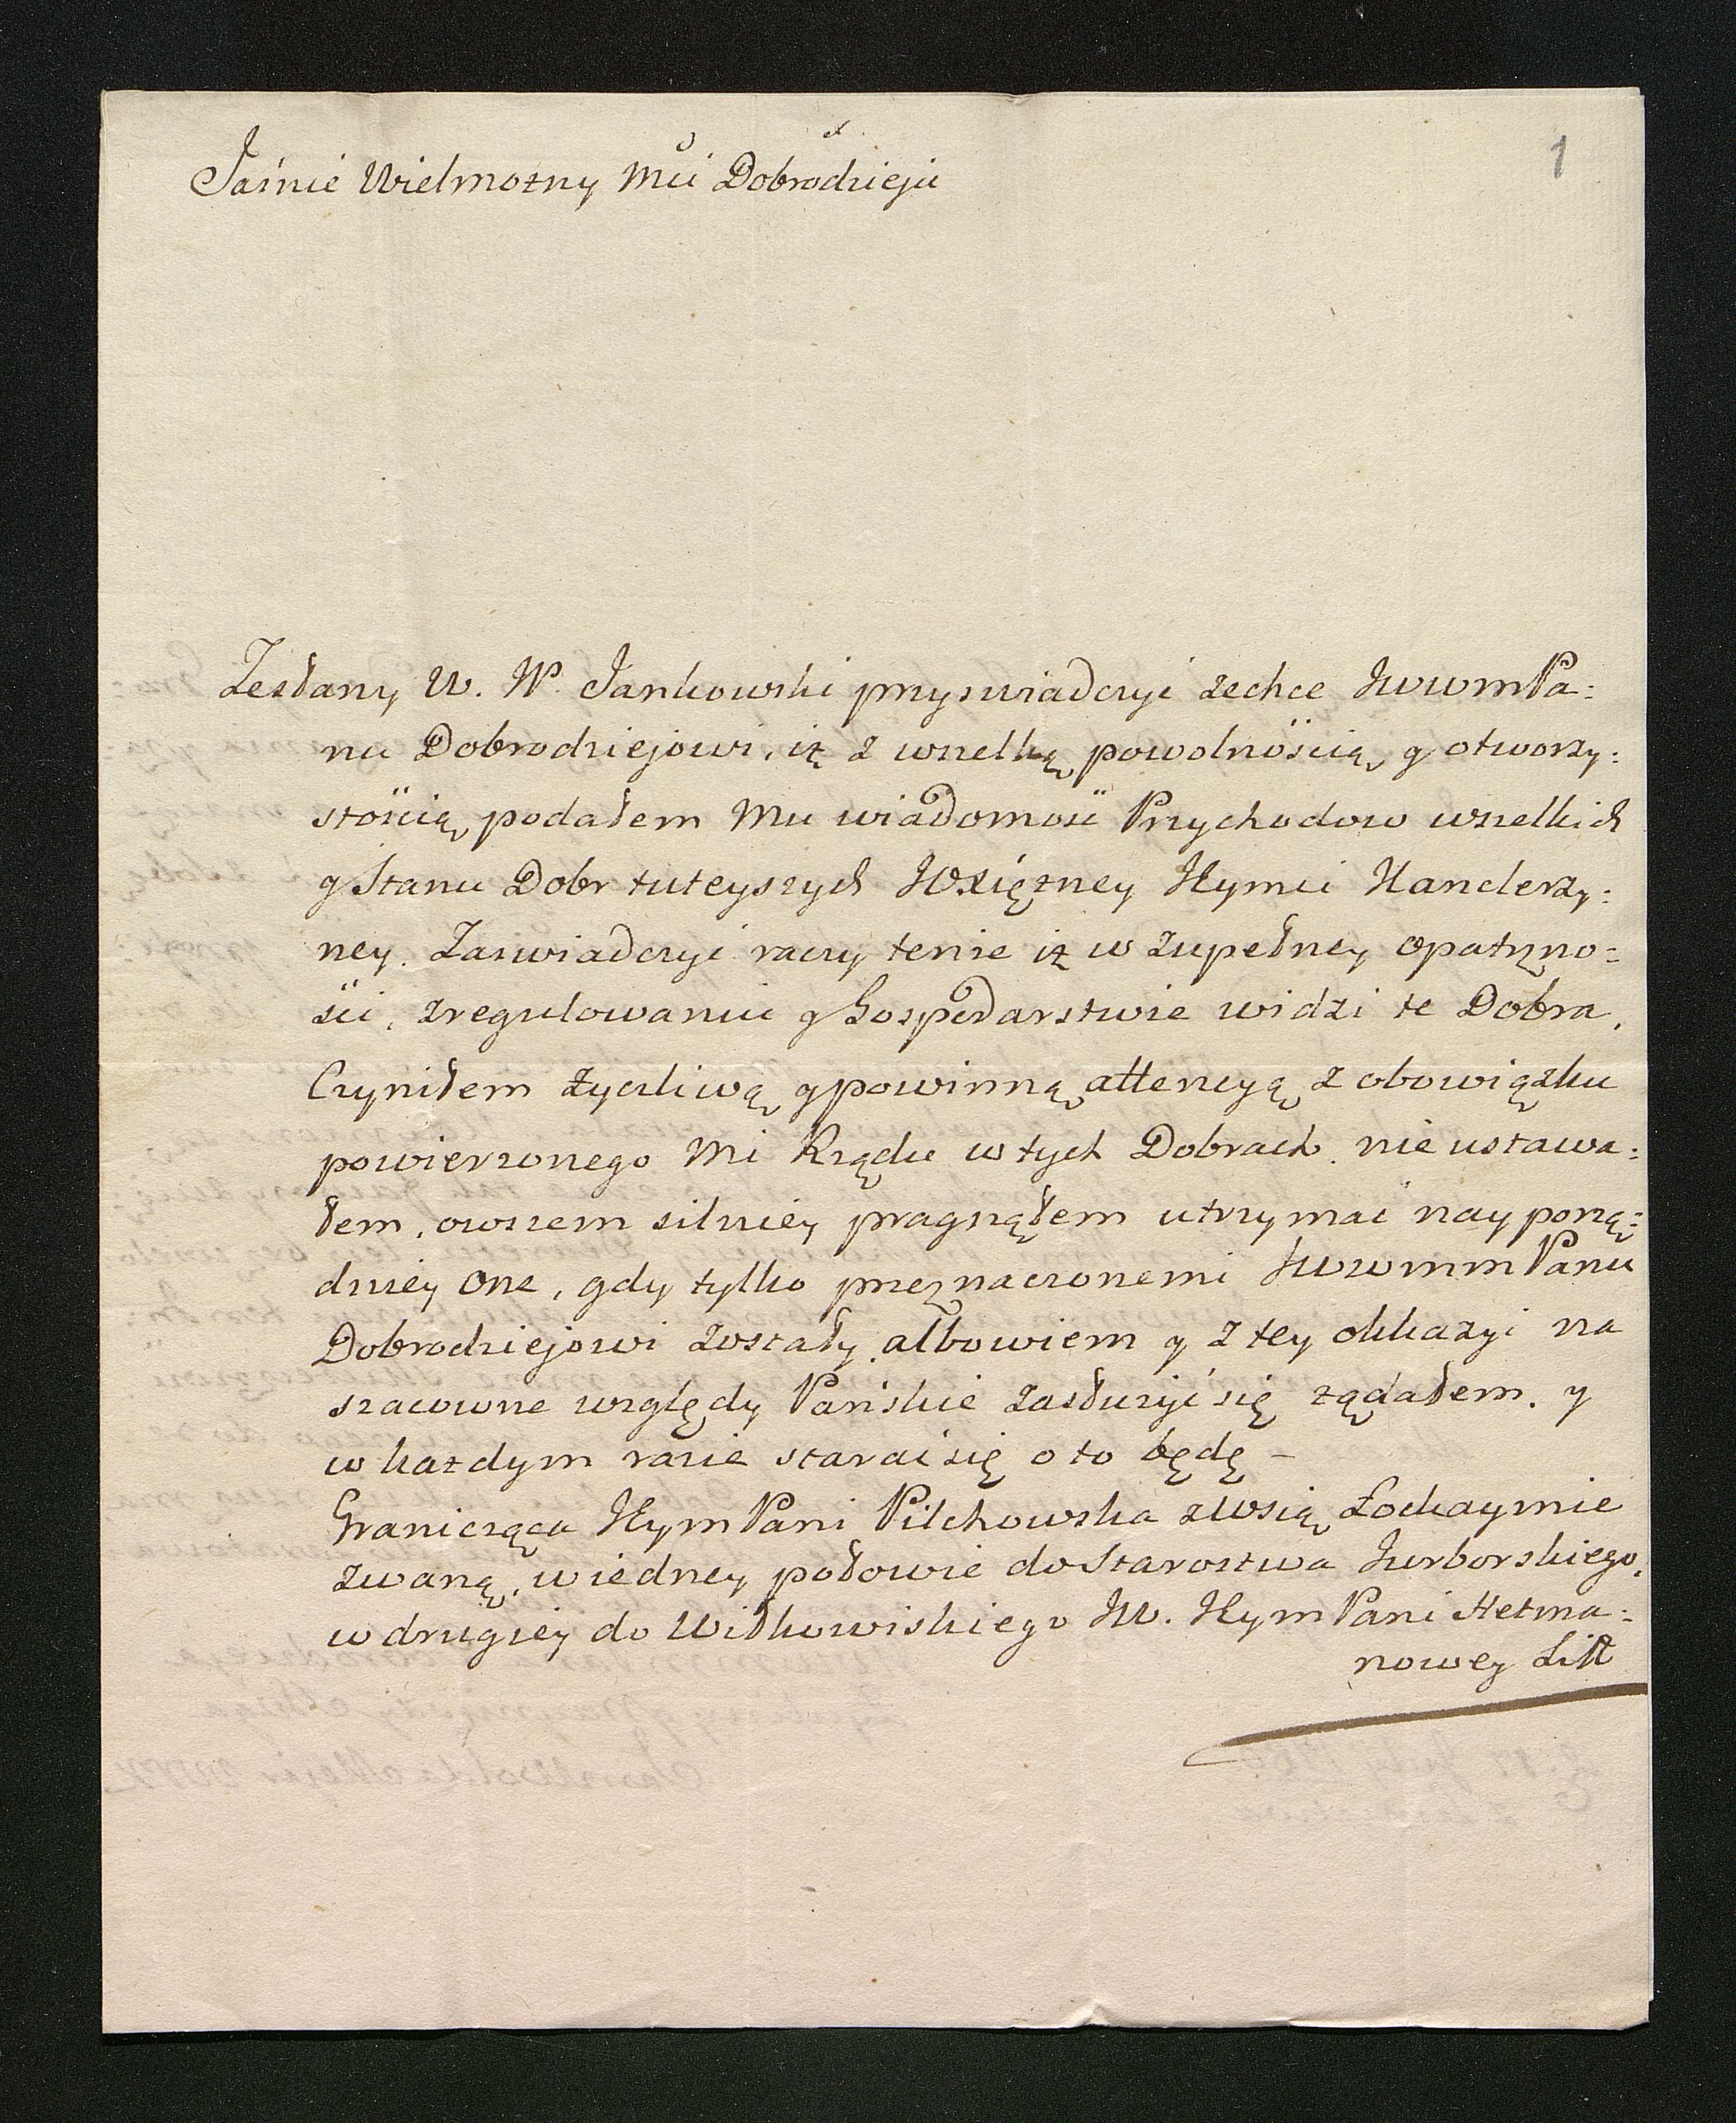 1
Jaśnie Wielmożny Mći Dobrodzieju
Zesłany W. JP. Jankowski przyświadczyć zechce JwwmPa:
nu Dobrodziejowi, iż z wszelką powolnością y otworzy:
stością podałem Mu wiadomość Przychodow wszelkich
y Stanu Dobr tuteyszych JOXiężney Jeymci Kanclerzy:
ney. Zaświadczyć raczy tenże iż w zupełney opatrzno:
ści, zregulowaniu y Gospodarstwie widzi te Dobra.
Czyniłem życzliwą y powinną attencyą z obowiązku
powierzonego mi Rządu w tych Dobrach. nie ustawa:
łem, owszem silniey pragnąłem utrzymać nayporzą:
dniey one, gdy tylko przeznaczonemi JwwmmPanu
Dobrodziejowi zostały, albowiem y z tey okkazyi na
szacowne względy Pańskie zasłużyć się żądałem. y
w każdym razie starać się o to będę –
Granicząca JeymPani Pilchowska z wsią Łockaymie
zwaną, w iedney połowie do Starostwa Jurborskiego,
w drugiey do Wiłkowiskiego JW. JeymPani Hetma:
nowey Litt